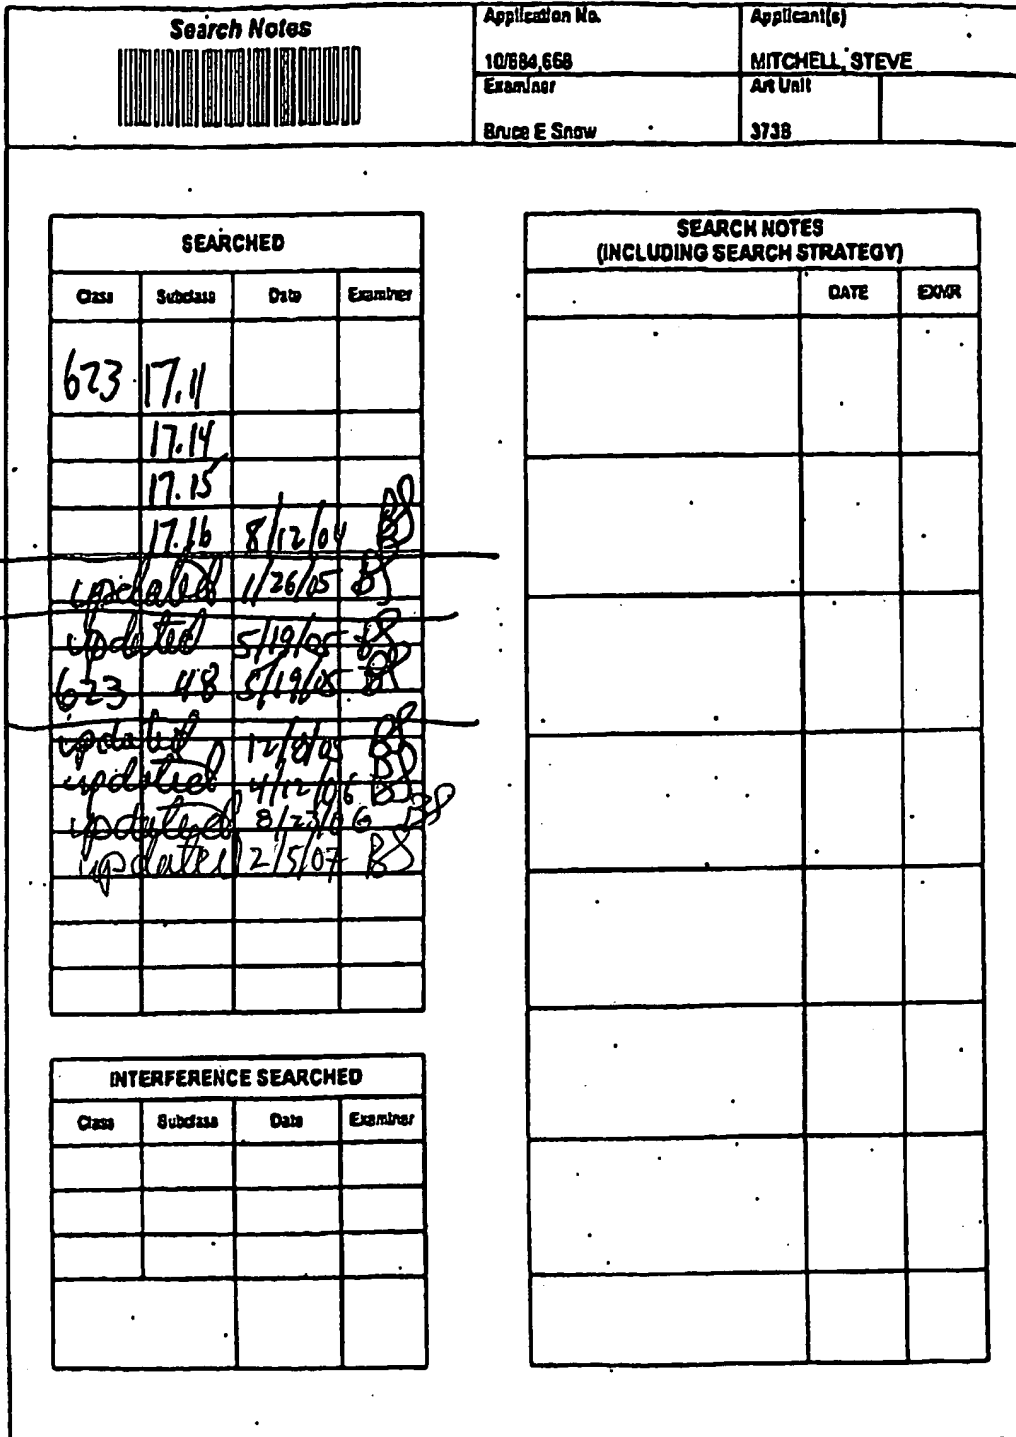 Search Notes
Application No.
Applicant(s)
10/684,668
MITCHELL, STEVE
Examiner
Art Unit
Bruce E Snow
3738
SEARCHED
Class Subclass Date Examiner
623 17.11
17.14
17.15
17.16 8/12/04 BS
updated 1/26/05 BS
updated 5/19/05 BS
623 48 5/19/05 BS
updated 12/8/05 BS
updated 4/12/06 BS
updated 8/23/06 BS
updated 2/5/07 BS
INTERFERENCE SEARCHED
Class Subclass Date Examiner
SEARCH NOTES
(INCLUDING SEARCH STRATEGY)
DATE EXMR